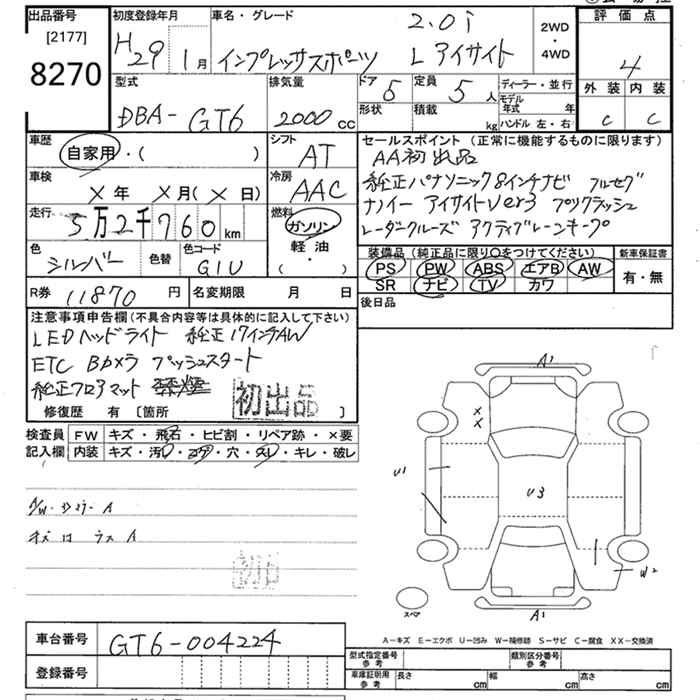 出品番号
[2177]
8270
初度登録年月
H29 1月
車名・グレード
2.0i
インプレッサスポーツ L アイサイト
2WD
・
4WD
評価点
4
外装 内装
C C
型式
DBA- GT6
排気量
2000 cc
ドア 5
定員 5人
形状
積載 kg
ディーラー・並行
モデル年式 年
ハンドル 左・右
車歴
自家用・( )
シフト
AT
車検
X年 X月(X日)
冷房
AAC
走行
5万2千760km
燃料
ガソリン
軽油
・( )
色
シルバー
色替
色コード
G1U
セールスポイント (正常に機能するものに限ります)
AA初出品
純正パナソニック8インチナビ フルセグ
ナノイー アイサイトver3 プリクラッシュ
レーダークルーズ アクティブレーンキープ
装備品 (純正品に限り〇をつけてください)
新車保証書
PS PW ABS エアB AW
SR ナビ TV カワ
有・無
R券 11870円
名変期限 月 日
後日品
注意事項申告欄(不具合内容等は具体的に記入して下さい)
LEDヘッドライト 純正17インチAW
ETC Bカメラ プッシュスタート
純正フロアマット
初出品
修復歴 有 [箇所 ]
検査員
記入欄
FW キズ・飛石・ヒビ割・リペア跡・×要
内装 キズ・汚レ・コゲ・穴・スレ・キレ・破レ
A1
X
X
U1
U3
W2
A1
スペア
A－キズ E－エクボ U－凹み W－補修跡 S－サビ C－腐食 XX－交換済
車台番号 GT6-004224
登録番号
型式指定番号
参考
類別区分番号
参考
車庫証明用
参考
長さ cm
幅 cm
高さ cm